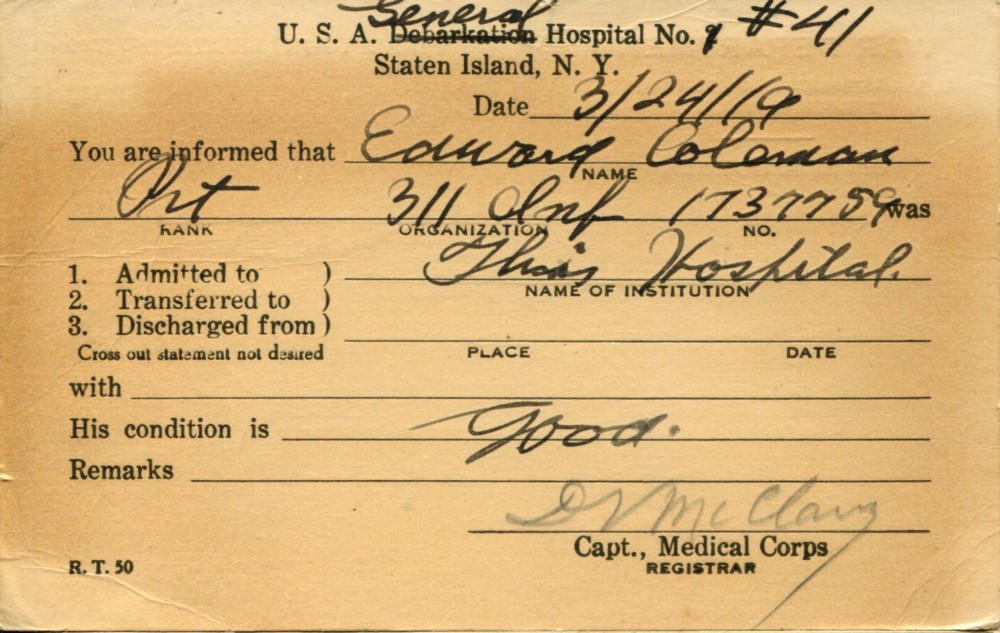 General
U. S. A. Debarkation Hospital No. 1 #41
Staten Island, N. Y.
Date 3/24/19
You are informed that Edward Coleman
NAME
Pvt 311 Inf 1737759 was
RANK ORGANIZATION NO.
1. Admitted to ) This Hospital.
NAME OF INSTITUTION
2. Transferred to )
3. Discharged from )
Cross out statement not desired PLACE DATE
with
His condition is Good.
Remarks
Capt., Medical Corps
R. T. 50 REGISTRAR